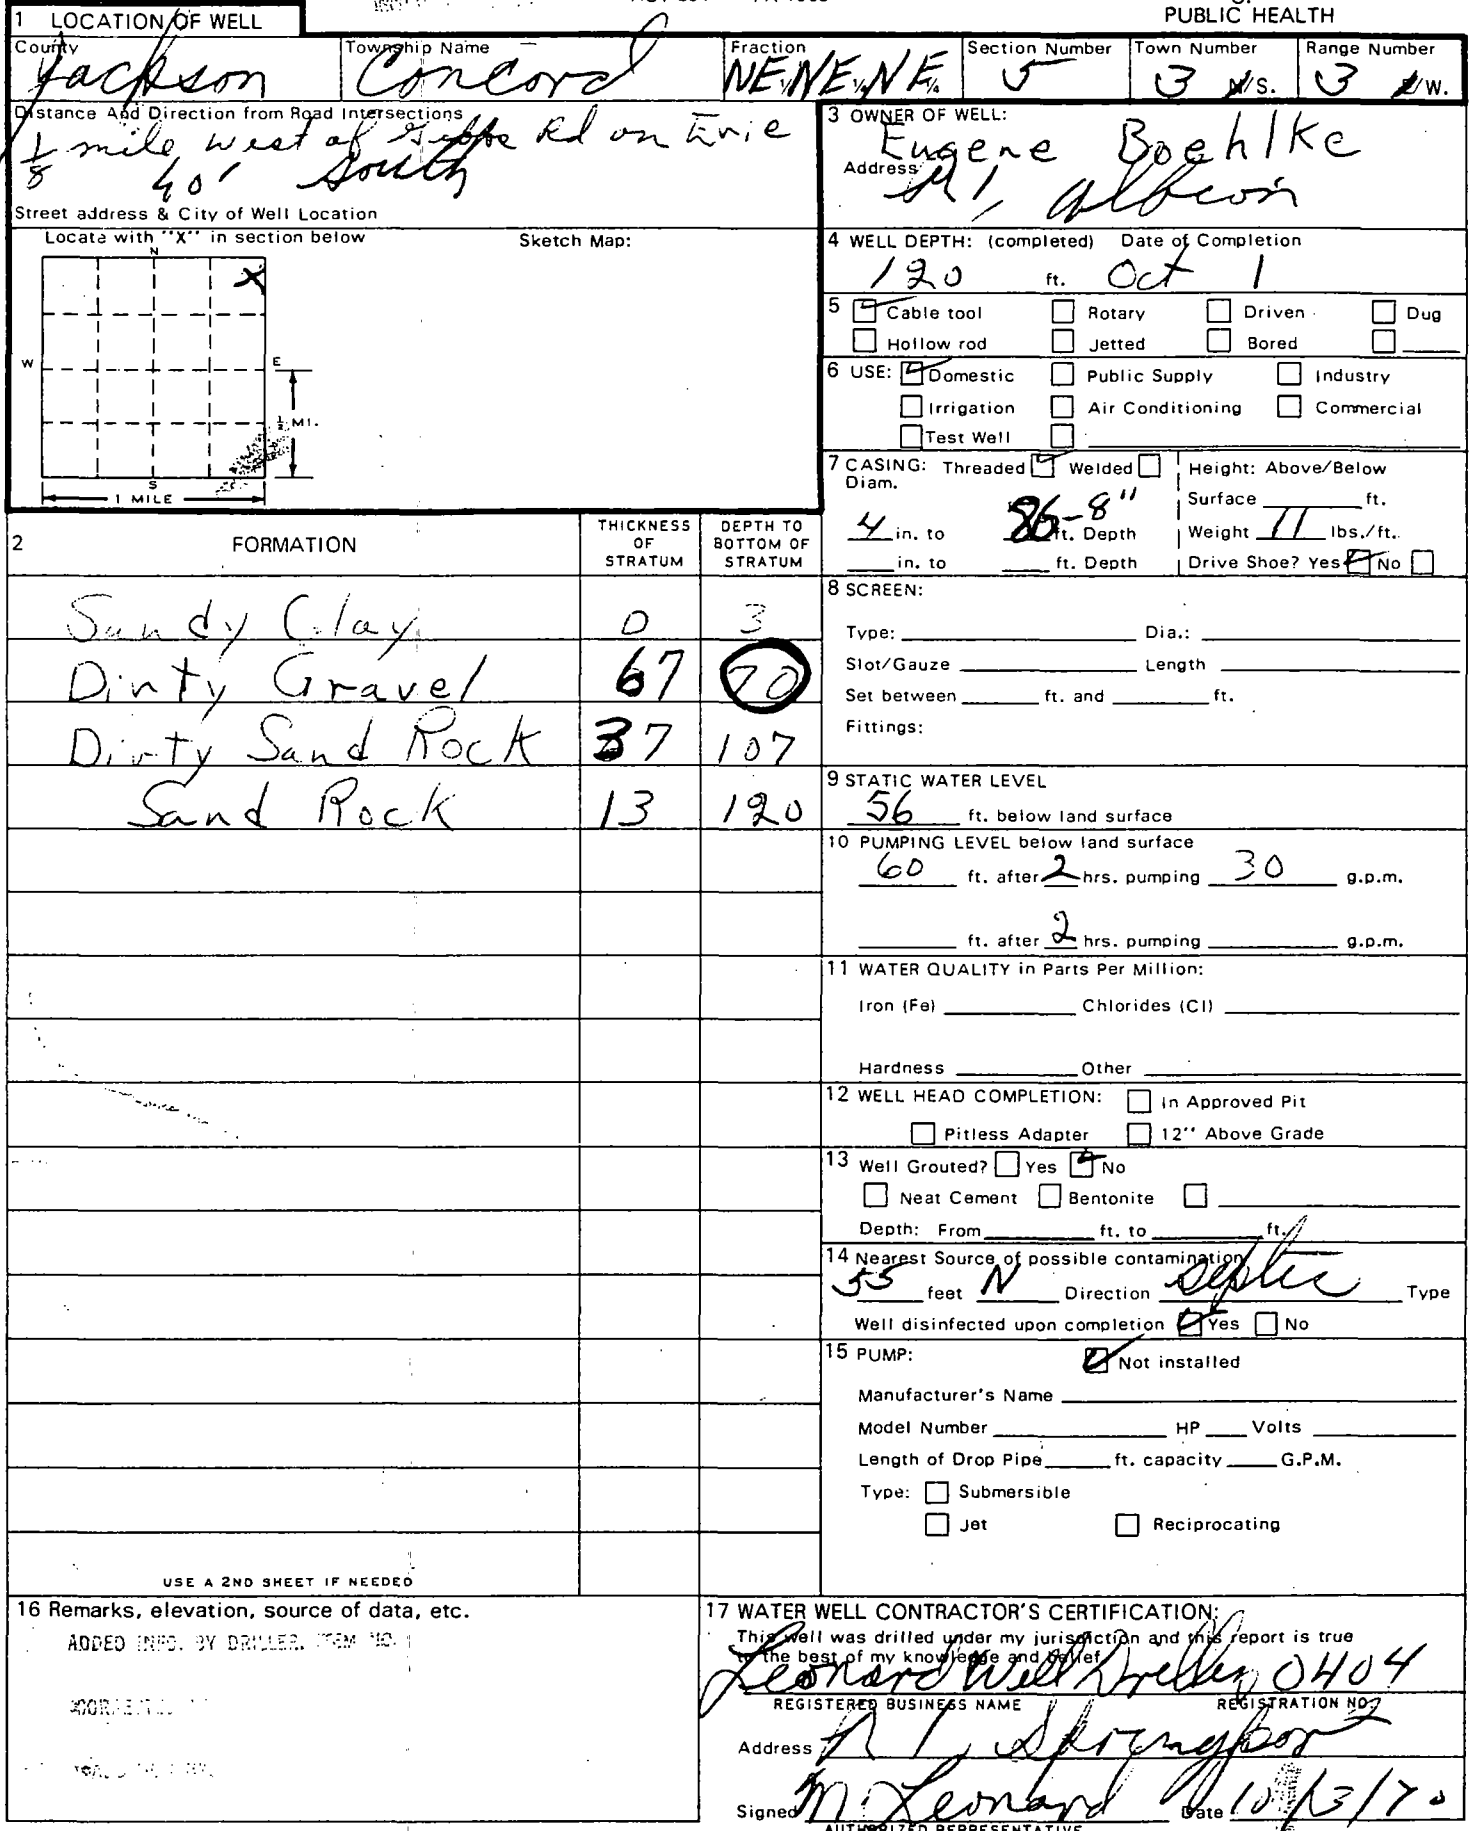 PUBLIC HEALTH
1 LOCATION OF WELL
County Township Name Fraction Section Number Town Number Range Number
Jackson Concord NE¼NE¼NE¼ 5 3 N/S. 3 E/W.
Distance And Direction from Road Intersections
1/8 mile west of Gibbs Rd on Erie
40' South
Street address & City of Well Location
Locate with "X" in section below Sketch Map:
N
X
W E
½ MI.
S
1 MILE
3 OWNER OF WELL:
Eugene Boehlke
Address R1, Albion
4 WELL DEPTH: (completed) Date of Completion
120 ft. Oct 1
5 Cable tool Rotary Driven Dug
Hollow rod Jetted Bored
6 USE: Domestic Public Supply Industry
Irrigation Air Conditioning Commercial
Test Well
7 CASING: Threaded Welded Height: Above/Below
Diam. Surface ft.
4 in. to 86-8" ft. Depth Weight 11 lbs./ft.
in. to ft. Depth Drive Shoe? Yes No
2 FORMATION THICKNESS OF STRATUM DEPTH TO BOTTOM OF STRATUM
Sandy Clay 0 3
Dirty Gravel 67 70
Dirty Sand Rock 37 107
Sand Rock 13 120
USE A 2ND SHEET IF NEEDED
8 SCREEN:
Type: Dia.:
Slot/Gauze Length
Set between ft. and ft.
Fittings:
9 STATIC WATER LEVEL
56 ft. below land surface
10 PUMPING LEVEL below land surface
60 ft. after 2 hrs. pumping 30 g.p.m.
ft. after 2 hrs. pumping g.p.m.
11 WATER QUALITY in Parts Per Million:
Iron (Fe) Chlorides (Cl)
Hardness Other
12 WELL HEAD COMPLETION: In Approved Pit
Pitless Adapter 12" Above Grade
13 Well Grouted? Yes No
Neat Cement Bentonite
Depth: From ft. to ft.
14 Nearest Source of possible contamination
55 feet N Direction septic Type
Well disinfected upon completion Yes No
15 PUMP: Not installed
Manufacturer's Name
Model Number HP Volts
Length of Drop Pipe ft. capacity G.P.M.
Type: Submersible
Jet Reciprocating
16 Remarks, elevation, source of data, etc.
ADDED INFO. BY DRILLER, ITEM NO.
17 WATER WELL CONTRACTOR'S CERTIFICATION:
This well was drilled under my jurisdiction and this report is true
to the best of my knowledge and belief.
Leonard Well Drilling 0404
REGISTERED BUSINESS NAME REGISTRATION NO.
Address R 1, Springport
Signed M. Leonard Date 10/13/70
AUTHORIZED REPRESENTATIVE